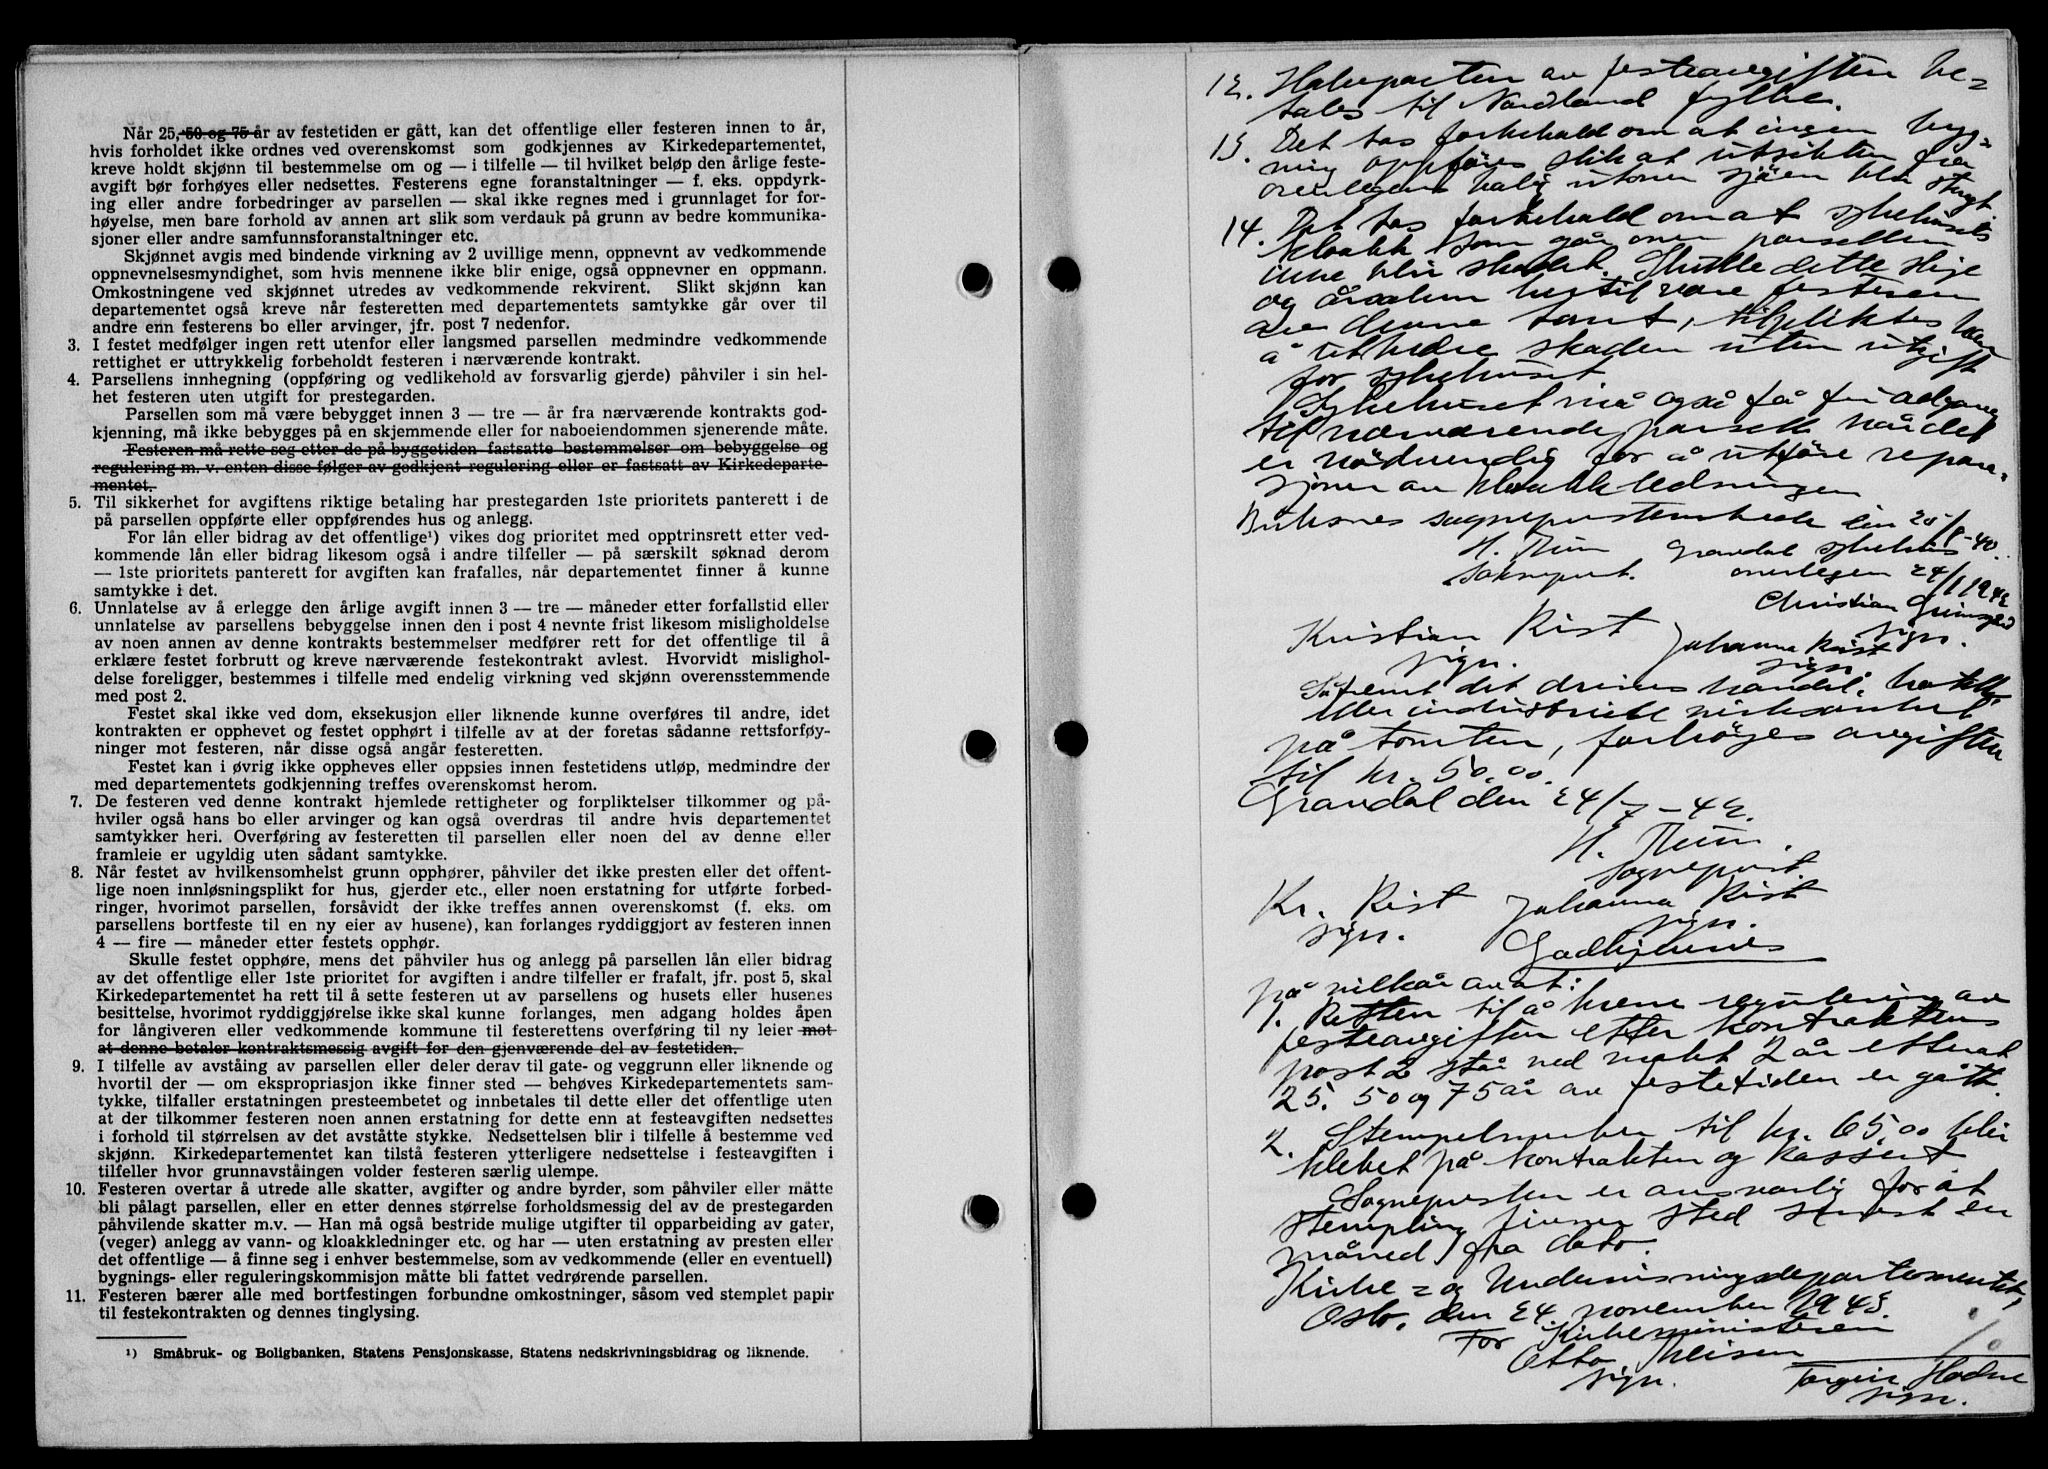 Når 25, 50 og 75 år av festetiden er gått, kan det offentlige eller festeren innen to år,
hvis forholdet ikke ordnes ved overenskomst som godkjennes av Kirkedepartementet,
kreve holdt skjønn til bestemmelse om og — i tilfelle — til hvilket beløp den årlige feste-
avgift bør forhøyes eller nedsettes. Festerens egne foranstaltninger — f. eks. oppdyrk-
ing eller andre forbedringer av parsellen — skal ikke regnes med i grunnlaget for for-
høyelse, men bare forhold av annen art slik som verdauk på grunn av bedre kommunika-
sjoner eller andre samfunnsforanstaltninger etc.
Skjønnet avgis med bindende virkning av 2 uvillige menn, oppnevnt av vedkommende
oppnevnelsesmyndighet, som hvis mennene ikke blir enige, også oppnevner en oppmann.
Omkostningene ved skjønnet utredes av vedkommende rekvirent. Slikt skjønn kan
departementet også kreve når festeretten med departementets samtykke går over til
andre enn festerens bo eller arvinger, jfr. post 7 nedenfor.
3. I festet medfølger ingen rett utenfor eller langsmed parsellen medmindre vedkommende
rettighet er uttrykkelig forbeholdt festeren i nærværende kontrakt.
4. Parsellens innhegning (oppføring og vedlikehold av forsvarlig gjerde) påhviler i sin hel-
het festeren uten utgift for prestegarden.
Parsellen som må være bebygget innen 3 — tre — år fra nærværende kontrakts god-
kjenning, må ikke bebygges på en skjemmende eller for naboeiendommen sjenerende måte.
Festeren må rette seg etter de på byggetiden fastsatte bestemmelser om bebyggelse og
regulering m. v. enten disse følger av godkjent regulering eller er fastsatt av Kirkedeparte-
mentet.
5. Til sikkerhet for avgiftens riktige betaling har prestegarden 1ste prioritets panterett i de
på parsellen oppførte eller oppførendes hus og anlegg.
For lån eller bidrag av det offentlige¹) vikes dog prioritet med opptrinsrett etter ved-
kommende lån eller bidrag likesom også i andre tilfeller — på særskilt søknad derom
— 1ste prioritets panterett for avgiften kan frafalles, når departementet finner å kunne
samtykke i det.
6. Unnlatelse av å erlegge den årlige avgift innen 3 — tre — måneder etter forfallstid eller
unnlatelse av parsellens bebyggelse innen den i post 4 nevnte frist likesom misligholdelse
av noen annen av denne kontrakts bestemmelser medfører rett for det offentlige til å
erklære festet forbrutt og kreve nærværende festekontrakt avlest. Hvorvidt mislighol-
delse foreligger, bestemmes i tilfelle med endelig virkning ved skjønn overensstemmende
med post 2.
Festet skal ikke ved dom, eksekusjon eller liknende kunne overføres til andre, idet
kontrakten er opphevet og festet opphørt i tilfelle av at der foretas sådanne rettsforføy-
ninger mot festeren, når disse også angår festeretten.
Festet kan i øvrig ikke oppheves eller oppsies innen festetidens utløp, medmindre der
med departementets godkjenning treffes overenskomst herom.
7. De festeren ved denne kontrakt hjemlede rettigheter og forpliktelser tilkommer og på-
hviler også hans bo eller arvinger og kan også overdras til andre hvis departementet
samtykker heri. Overføring av festeretten til parsellen eller noen del av denne eller
framleie er ugyldig uten sådant samtykke.
8. Når festet av hvilkensomhelst grunn opphører, påhviler det ikke presten eller det offent-
lige noen innløsningsplikt for hus, gjerder etc., eller noen erstatning for utførte forbed-
ringer, hvorimot parsellen, forsåvidt der ikke treffes annen overenskomst (f. eks. om
parsellens bortfeste til en ny eier av husene), kan forlanges ryddiggjort av festeren innen
4 — fire — måneder etter festets opphør.
Skulle festet opphøre, mens det påhviler hus og anlegg på parsellen lån eller bidrag
av det offentlige eller 1ste prioritet for avgiften i andre tilfeller er frafalt, jfr. post 5, skal
Kirkedepartementet ha rett til å sette festeren ut av parsellens og husets eller husenes
besittelse, hvorimot ryddiggjørelse ikke skal kunne forlanges, men adgang holdes åpen
for långiveren eller vedkommende kommune til festerettens overføring til ny leier mot
at denne betaler kontraktsmessig avgift for den gjenværende del av festetiden.
9. I tilfelle av avståing av parsellen eller deler derav til gate- og veggrunn eller liknende og
hvortil der — om ekspropriasjon ikke finner sted — behøves Kirkedepartementets sam-
tykke, tilfaller erstatningen presteembetet og innbetales til dette eller det offentlige uten
at der tilkommer festeren noen annen erstatning for dette enn at festeavgiften nedsettes
i forhold til størrelsen av det avståtte stykke. Nedsettelsen blir i tilfelle å bestemme ved
skjønn. Kirkedepartementet kan tilstå festeren ytterligere nedsettelse i festeavgiften i
tilfeller hvor grunnavståingen volder festeren særlig ulempe.
10. Festeren overtar å utrede alle skatter, avgifter og andre byrder, som påhviler eller måtte
bli pålagt parsellen, eller en etter dennes størrelse forholdsmessig del av de prestegarden
påhvilende skatter m.v. — Han må også bestride mulige utgifter til opparbeiding av gater,
(veger) anlegg av vann- og kloakkledninger etc. og har — uten erstatning av presten eller
det offentlige — å finne seg i enhver bestemmelse, som av vedkommende (eller en eventuell)
bygnings- eller reguleringskommisjon måtte bli fattet vedrørende parsellen.
11. Festeren bærer alle med bortfestingen forbundne omkostninger, såsom ved stemplet papir
til festekontrakten og dennes tinglysing.
¹) Småbruk- og Boligbanken, Statens Pensjonskasse, Statens nedskrivningsbidrag og liknende.
12. Halvparten av festeavgiften be=
tales til Nordland fylke.
13. Det tas forbehold om at ingen byg=
ning oppføres slik at utsikten fra
overlegens bolig utover sjøen blir stengt
14. Det tas forbehold om at sykehusets
kloakk som går over parsellen
ikke blir skadet. Skulle dette skje
og årsaken hertil være festeren
av denne tomt, tilpliktes han
å utbedre skaden uten utgift
for sykehuset
Sykehuset må også få fri adgang
til nærværende parsell når det
er nødvendig for å utføre repara-
sjoner av kloakkledningen
Buksnes sogneprestembede den 25/8-40.
H. Thun Gravdal sykehus
sokneprest. overlegen 24/1 1942
Christian
sign.
Kristian Rist Johanna Rist
sign. sign.
Såfremt det drives handel, hotell
eller industriell virksomhet
på tomten, forhøyes avgiften
til kr. 50.00.
Gravdal den 24/7-42.
H. Thun.
sogneprest.
Kr. Rist Johanna Rist
sign. sign.
Godkjennes
på vilkår av at:
1. Retten til å kreve regulering av
festeavgiften etter kontraktens
post 2 står ved makt 2 år etter at
25. 50 og 75 år av festetiden er gått.
2. Stempelmerker til kr. 65,00 blir
klebet på kontrakten og kassert
Sognepresten er ansvarlig for at
stempling finner sted senest en
måned fra dato.
Kirke= og Undervisningsdepartementet,
Oslo, den 24 november 1943
For Kirkeministeren
Otto
sign. Hodne
sign.